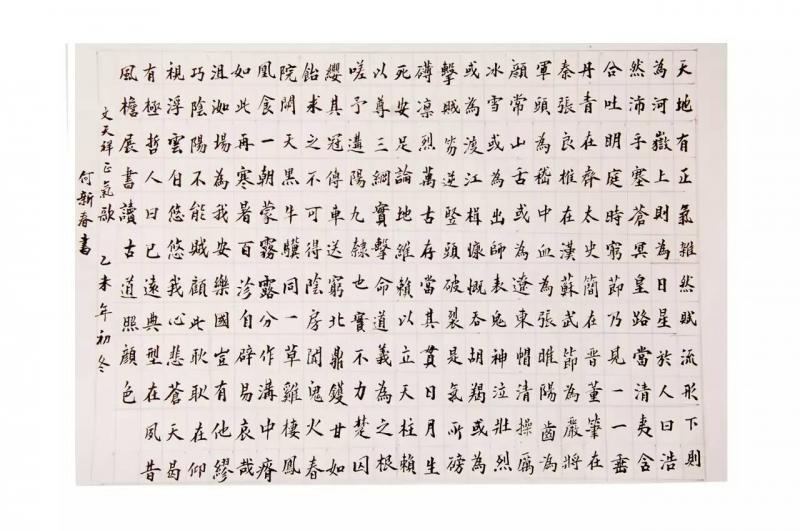 天地有正氣雜然賦流形下則
為河嶽上則為日星於人曰浩
然沛乎塞蒼冥皇路當清夷含
合吐明庭時窮節乃見一一垂
丹青在齊太史簡在晉董筆在
秦張良椎在漢蘇武節為嚴將
軍頭為嵇中血為張睢陽齒為
顏常山舌或為遼東帽清操厲
冰雪或為出師表鬼神泣壯烈
或為渡江楫慷慨吞胡羯或為
擊賊笏逆豎頭破裂是氣所磅
礡凜烈萬古存當其貫日月生
死安足論地維賴以立天柱賴
以尊三綱實繫命道義為之根
嗟予遘陽九隸也實不力楚囚
纓其冠傳車送窮北鼎鑊甘如
飴求之不可得陰房闃鬼火春
院閟天黑牛驥同一草雞棲鳳
凰食一朝蒙霧露分作溝中瘠
如此再寒暑百沴自辟易哀哉
沮洳場為我安樂國豈有他繆
巧陰陽不能賊顧此耿耿在仰
視浮雲白悠悠我心悲蒼天曷
有極哲人日已遠典型在夙昔
風檐展書讀古道照顏色
文天祥正氣歌 乙未年初冬
何新春書